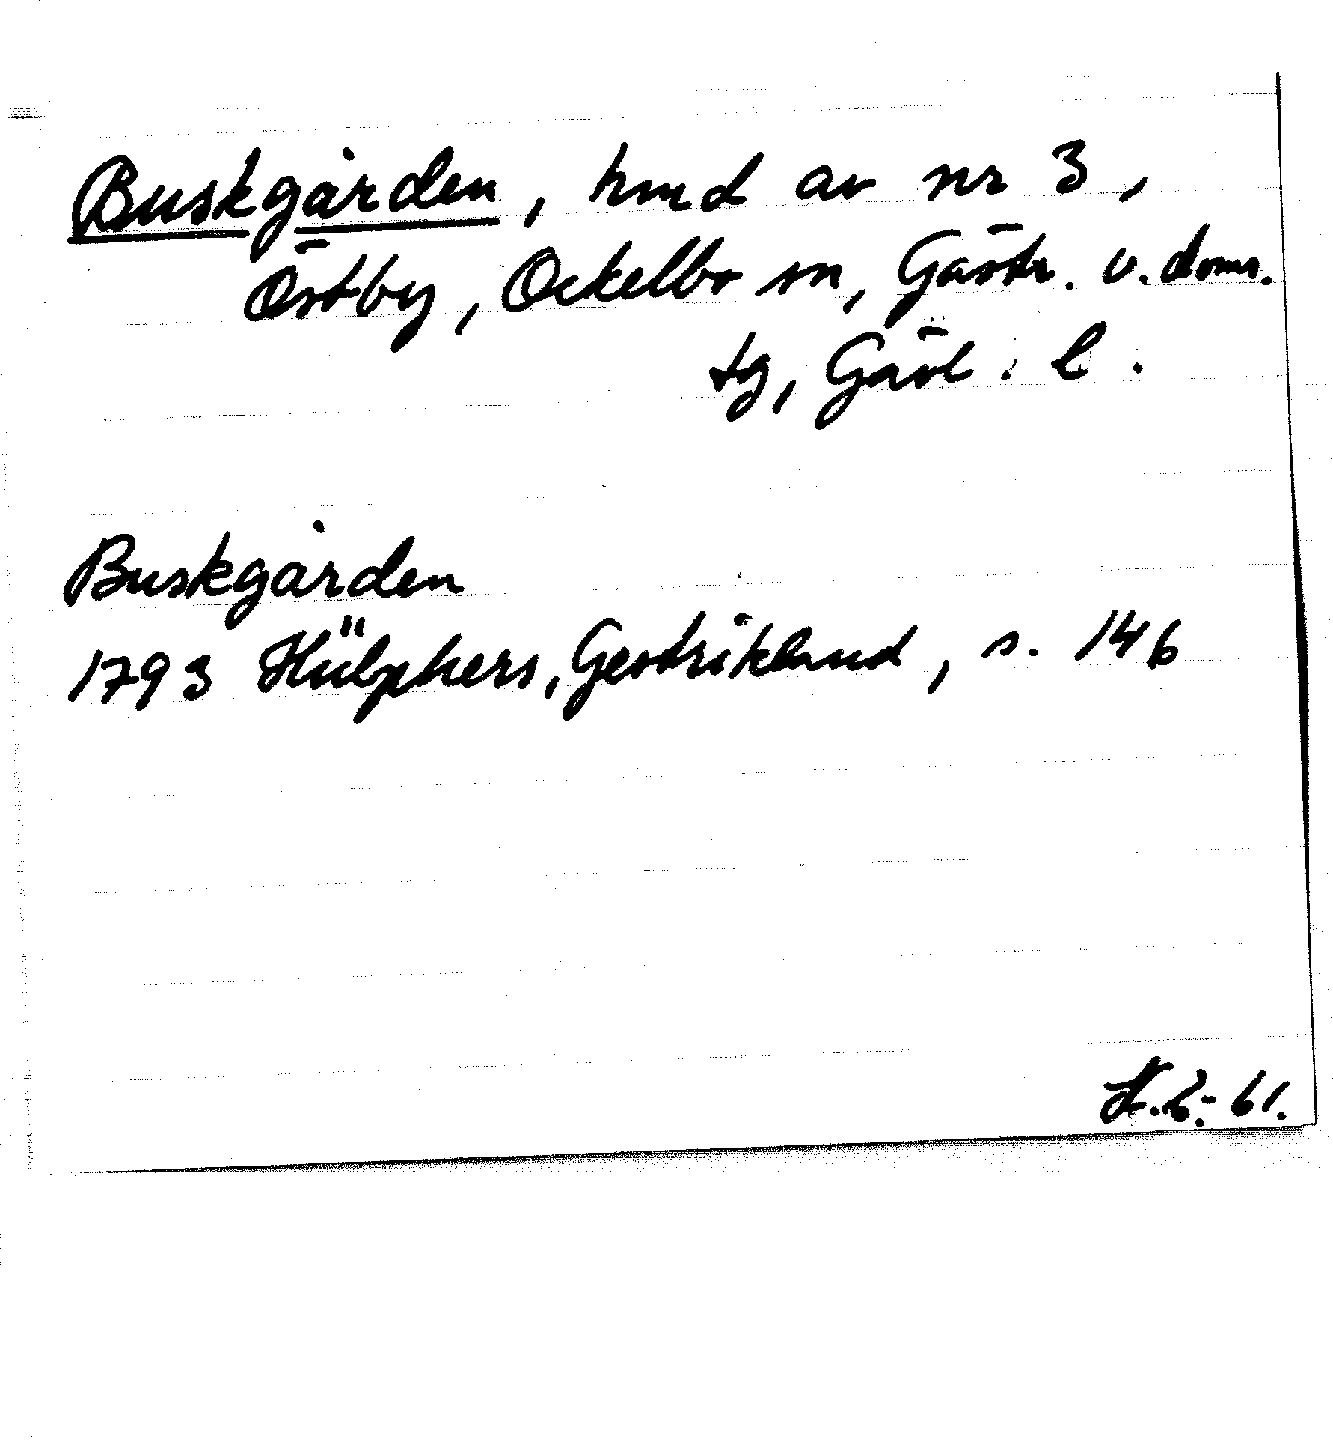 Buskgården, hmd av nr 3,
Östby, Ockelbo sn, Gästr. v. doms.
tg, Gävl. l.
Buskgården
1793 Hülphers, Gestrikland, s. 146